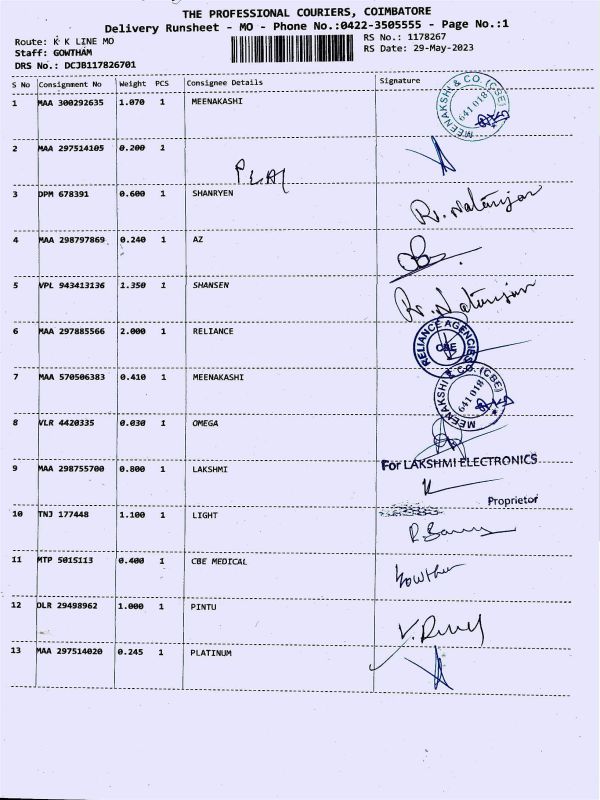 THE PROFESSIONAL COURIERS, COIMBATORE
Delivery Runsheet - MO - Phone No.:0422-3505555 - Page No.:1
Route: K K LINE MO
RS No.: 1178267
Staff: GOWTHAM
RS Date: 29-May-2023
DRS No.: DCJB117826701
S No Consignment No Weight PCS Consignee Details Signature
1 MAA 300292635 1.070 1 MEENAKASHI
MEENAKSHI & CO. (CBE) 641 018
2 MAA 297514105 0.200 1
PLAT
3 DPM 678391 0.600 1 SHANRYEN
4 MAA 298797869 0.240 1 AZ
5 VPL 943413136 1.350 1 SHANSEN
6 MAA 297885566 2.000 1 RELIANCE
RELIANCE AGENCIES CBE
7 MAA 570506383 0.410 1 MEENAKASHI
MEENAKSHI & CO. (CBE) 641 018
8 VLR 4420335 0.030 1 OMEGA
For LAKSHMI ELECTRONICS
9 MAA 298755700 0.800 1 LAKSHMI
Proprietor
10 TNJ 177448 1.100 1 LIGHT
11 MTP 5015113 0.400 1 CBE MEDICAL
12 DLR 29498962 1.000 1 PINTU
13 MAA 297514020 0.245 1 PLATINUM